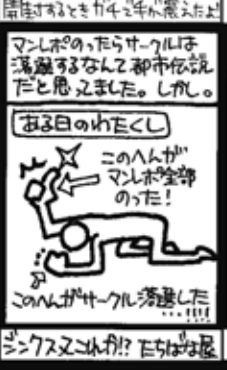 開封するときガチで手が震えたよ
マンレポのったらサークルは
落選するなんて都市伝説
だと思ってました。しかし。
ある日のわたくし
このへんが
マンレポ全部
のった!
このへんがサークル落選した
...!!!!
ジンクスってこれか!? たちばな屋